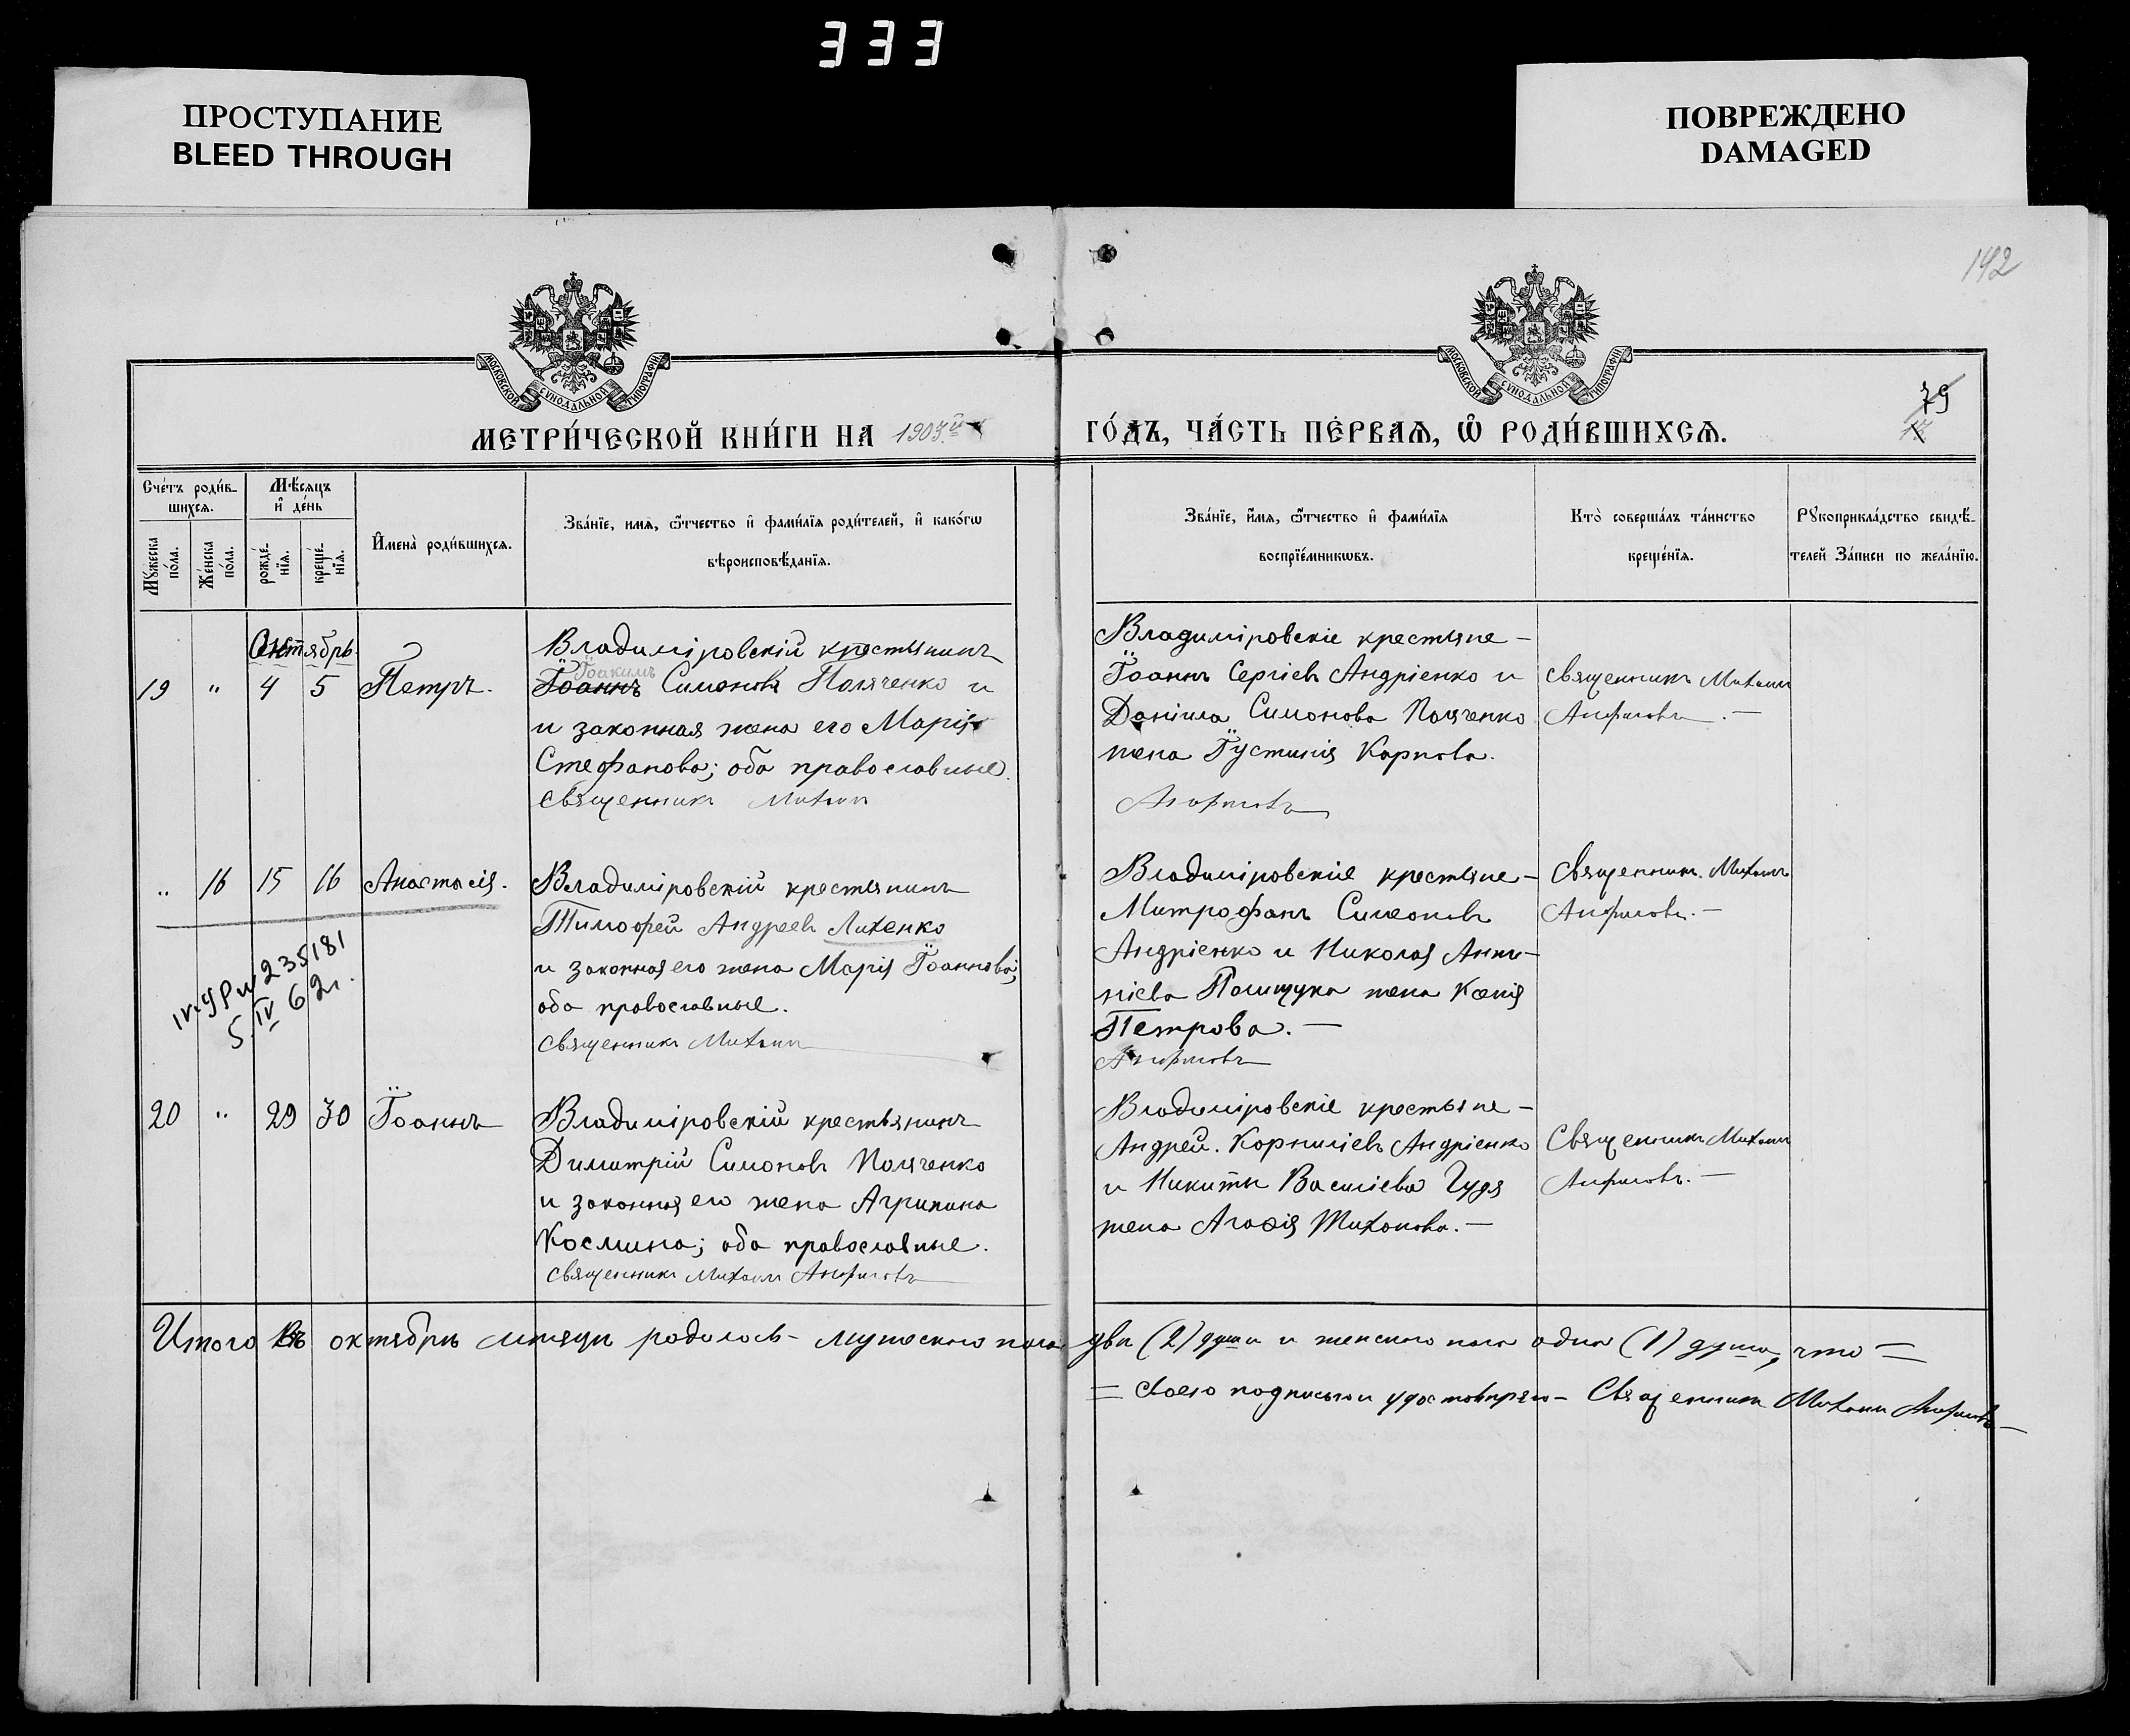 333
ПРОСТУПАНИЕ
BLEED THROUGH
ПОВРЕЖДЕНО
DAMAGED
192
МОСКОВСКОЙ СѴНОДАЛЬНОЙ ТИПОГРАФІИ
МОСКОВСКОЙ СѴНОДАЛЬНОЙ ТИПОГРАФІИ
79
МЕТРИ́ЧЕСКОЙ КНИ́ГИ НА 1903й
ГО́ДЪ, ЧА́СТЬ ПЕ́РВАѦ, Ѡ РОДИ́ВШИХСѦ.
Сче́тъ роди́вшихсѧ.
Мꙋ́жеска по́ла.
Же́нска по́ла.
Мѣ́сѧцъ и҆ де́нь
рожде́нїѧ.
креще́нїѧ.
И҆мена̀ роди́вшихсѧ.
Зва́нїе, имѧ, ѻ҆́тчество и҆ фами́лїѧ роди́телей, и҆ како́гѡ
вѣроисповѣ́данїѧ.
Зва́нїе, и҆́мѧ, ѻ҆́тчество и҆ фами́лїѧ
воспрїе́мникѡвъ.
Кто̀ соверша́лъ та́инство
креще́нїѧ.
Рꙋкоприкла́дство свидѣ́-
телей За́писи по жела́нїю.
Октябрь
19 " 4 5 Петръ.
Владиміровскій крестьянинъ
Іоакимъ
Іоаннъ Симоновъ Поляченко и
и законная жена его Марія
Стефанова; оба православные.
Священникъ Михаилъ
Владиміровскіе крестьяне –
Іоаннъ Сергіевъ Андріенко и
Даніила Симонова Поляченко
жена Іустинія Карпова.
Анфиловъ
Священникъ Михаилъ
Анфиловъ. –
" 16 15 16 Анастасія.
Владиміровскій крестьянинъ
Тимофей Андреевъ Лихенко
и законная его жена Марія Іоаннова;
оба православные.
Священникъ Михаилъ
235181
5 IV 62г.
Владиміровскіе крестьяне –
Митрофанъ Симеоновъ
Андріенко и Николая
Полищука жена Ксенія
Петрова. –
Анфиловъ
Священникъ Михаилъ
Анфиловъ. –
20 " 29 30 Іоаннъ
Владиміровскій крестьянинъ
Димитрій Симоновъ Поляченко
и законная его жена Агрипина
Космина; оба православные.
Священникъ Михаилъ Анфиловъ
Владиміровскіе крестьяне –
Андрей Корниліевъ Андріенко
и Никиты Василіева Гудя
жена Агаѳія Тихонова. –
Священникъ Михаилъ
Анфиловъ. –
Итого въ октябрѣ мѣсяцѣ родилось – мужескаго пола два (2) души и женскаго пола одна (1) душа, что =
= своею подписью удостовѣряю – Священникъ Михаилъ Анфиловъ –